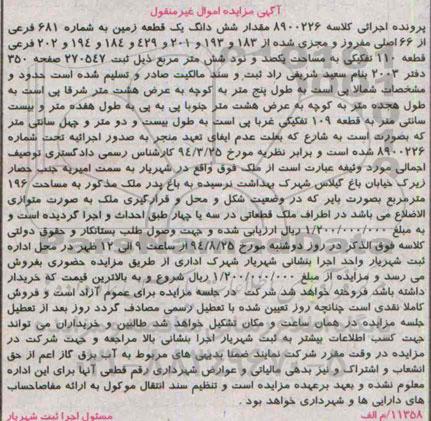 آگهی مزایده اموال غیرمنقول
پرونده اجرائی کلاسه ۸۹۰۰۲۲۶ مقدار شش دانگ یک قطعه زمین به شماره ۶۸۱ فرعی
از ۶۶ اصلی مفروز و مجزی شده از ۱۸۳ و ۱۹۳ و ۲۰۱ و ۴۲۹ و ۱۸۴ و ۱۹۴ و ۲۰۲ فرعی
قطعه ۱۱۰ تفکیکی به مساحت یکصد و نود شش متر مربع ذیل ثبت ۲۷۰۵۴۷ صفحه ۳۵۰
دفتر ۲۰۰۳ بنام سعید شریفی راد ثبت و سند مالکیت صادر و تسلیم شده است حدود و
مشخصات شمالا پی است به طول پنج متر به کوچه به عرض هشت متر شرقا پی است به
طول هجده متر به کوچه به عرض هشت متر جنوبا پی به پی به طول هفده متر و بیست
سانتی متر به قطعه ۱۰۹ تفکیکی غربا پی است به طول بیست و دو متر و چهل سانتی متر
که بصورت است به شارع که بعلت عدم ایفای تعهد منجر به صدور اجرائیه تحت شماره
۸۹۰۰۲۲۶ شده است و برابر نظریه مورخ ۹۴/۳/۲۵ کارشناس رسمی دادگستری توصیف
اجمالی مورد وثیقه عبارت است از ملک فوق واقع در شهریار به سمت امیریه جنب حصار
زیرک خیابان باغ گیلاس شهرک بهداشت نرسیده به باغ پدر ملک مذکور به مساحت ۱۹۶
مترمربع بصورت بایر که در وضعیت شکل و محل و قرارگیری ملک به صورت متوازی
الاضلاع می باشد در اطراف ملک قطعاتی در سه یا چهار طبق احداث و اجرا گردیده است و
به مبلغ ۱/۲۰۰/۰۰۰/۰۰۰ ریال ارزیابی شده و جهت وصول طلب بستانکار و حقوق دولتی
کلاسه فوق الذکر در روز دوشنبه مورخ ۹۴/۸/۲۵ از ساعت ۹ الی ۱۲ ظهر در محل اداره
ثبت شهریار واحد اجرا بنشانی شهریار شهرک اداری از طریق مزایده حضوری بفروش
می رسد و مزایده از مبلغ ۱/۲۰۰/۰۰۰/۰۰۰ ریال شروع و به بالاترین قیمت که خریدار
داشته باشد فروخته خواهد شد شرکت در جلسه مزایده برای عموم آزاد است و فروش
کاملا نقدی است چنانچه روز تعیین شده با تعطیل رسمی مصادف گردد روز بعد از تعطیل
جلسه مزایده در همان ساعت و مکان تشکیل خواهد شد طالبین و خریداران می تواند
جهت کسب اطلاعات بیشتر به ثبت شهریار اجرا بنشانی بالا مراجعه و جهت شرکت در
مزایده در وقت مقرر شرکت نمایند ضمنا بدیهی های مربوط به آب برق گاز اعم از حق
انشعاب و اشتراک و نیز بدهی مالیاتی و عوارض شهرداری رقم قطعی آنها برای این اداره
معلوم نشده و بعهد برعهده مزایده است و تنظیم سند انتقال موکول به ارائه مفاصاحساب
های دارایی ها و شهرداری خواهد بود .
۱۱۳۵۸/م الف مسئول اجرا ثبت شهریار